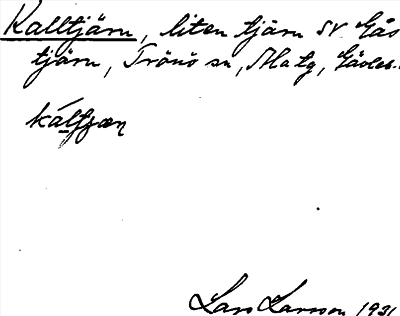 Kalltjärn, liten tjärn SV Gås
tjärn, Trönö sn, Alstg, Gävleb.
káltjæn
Lars Larsson 1931